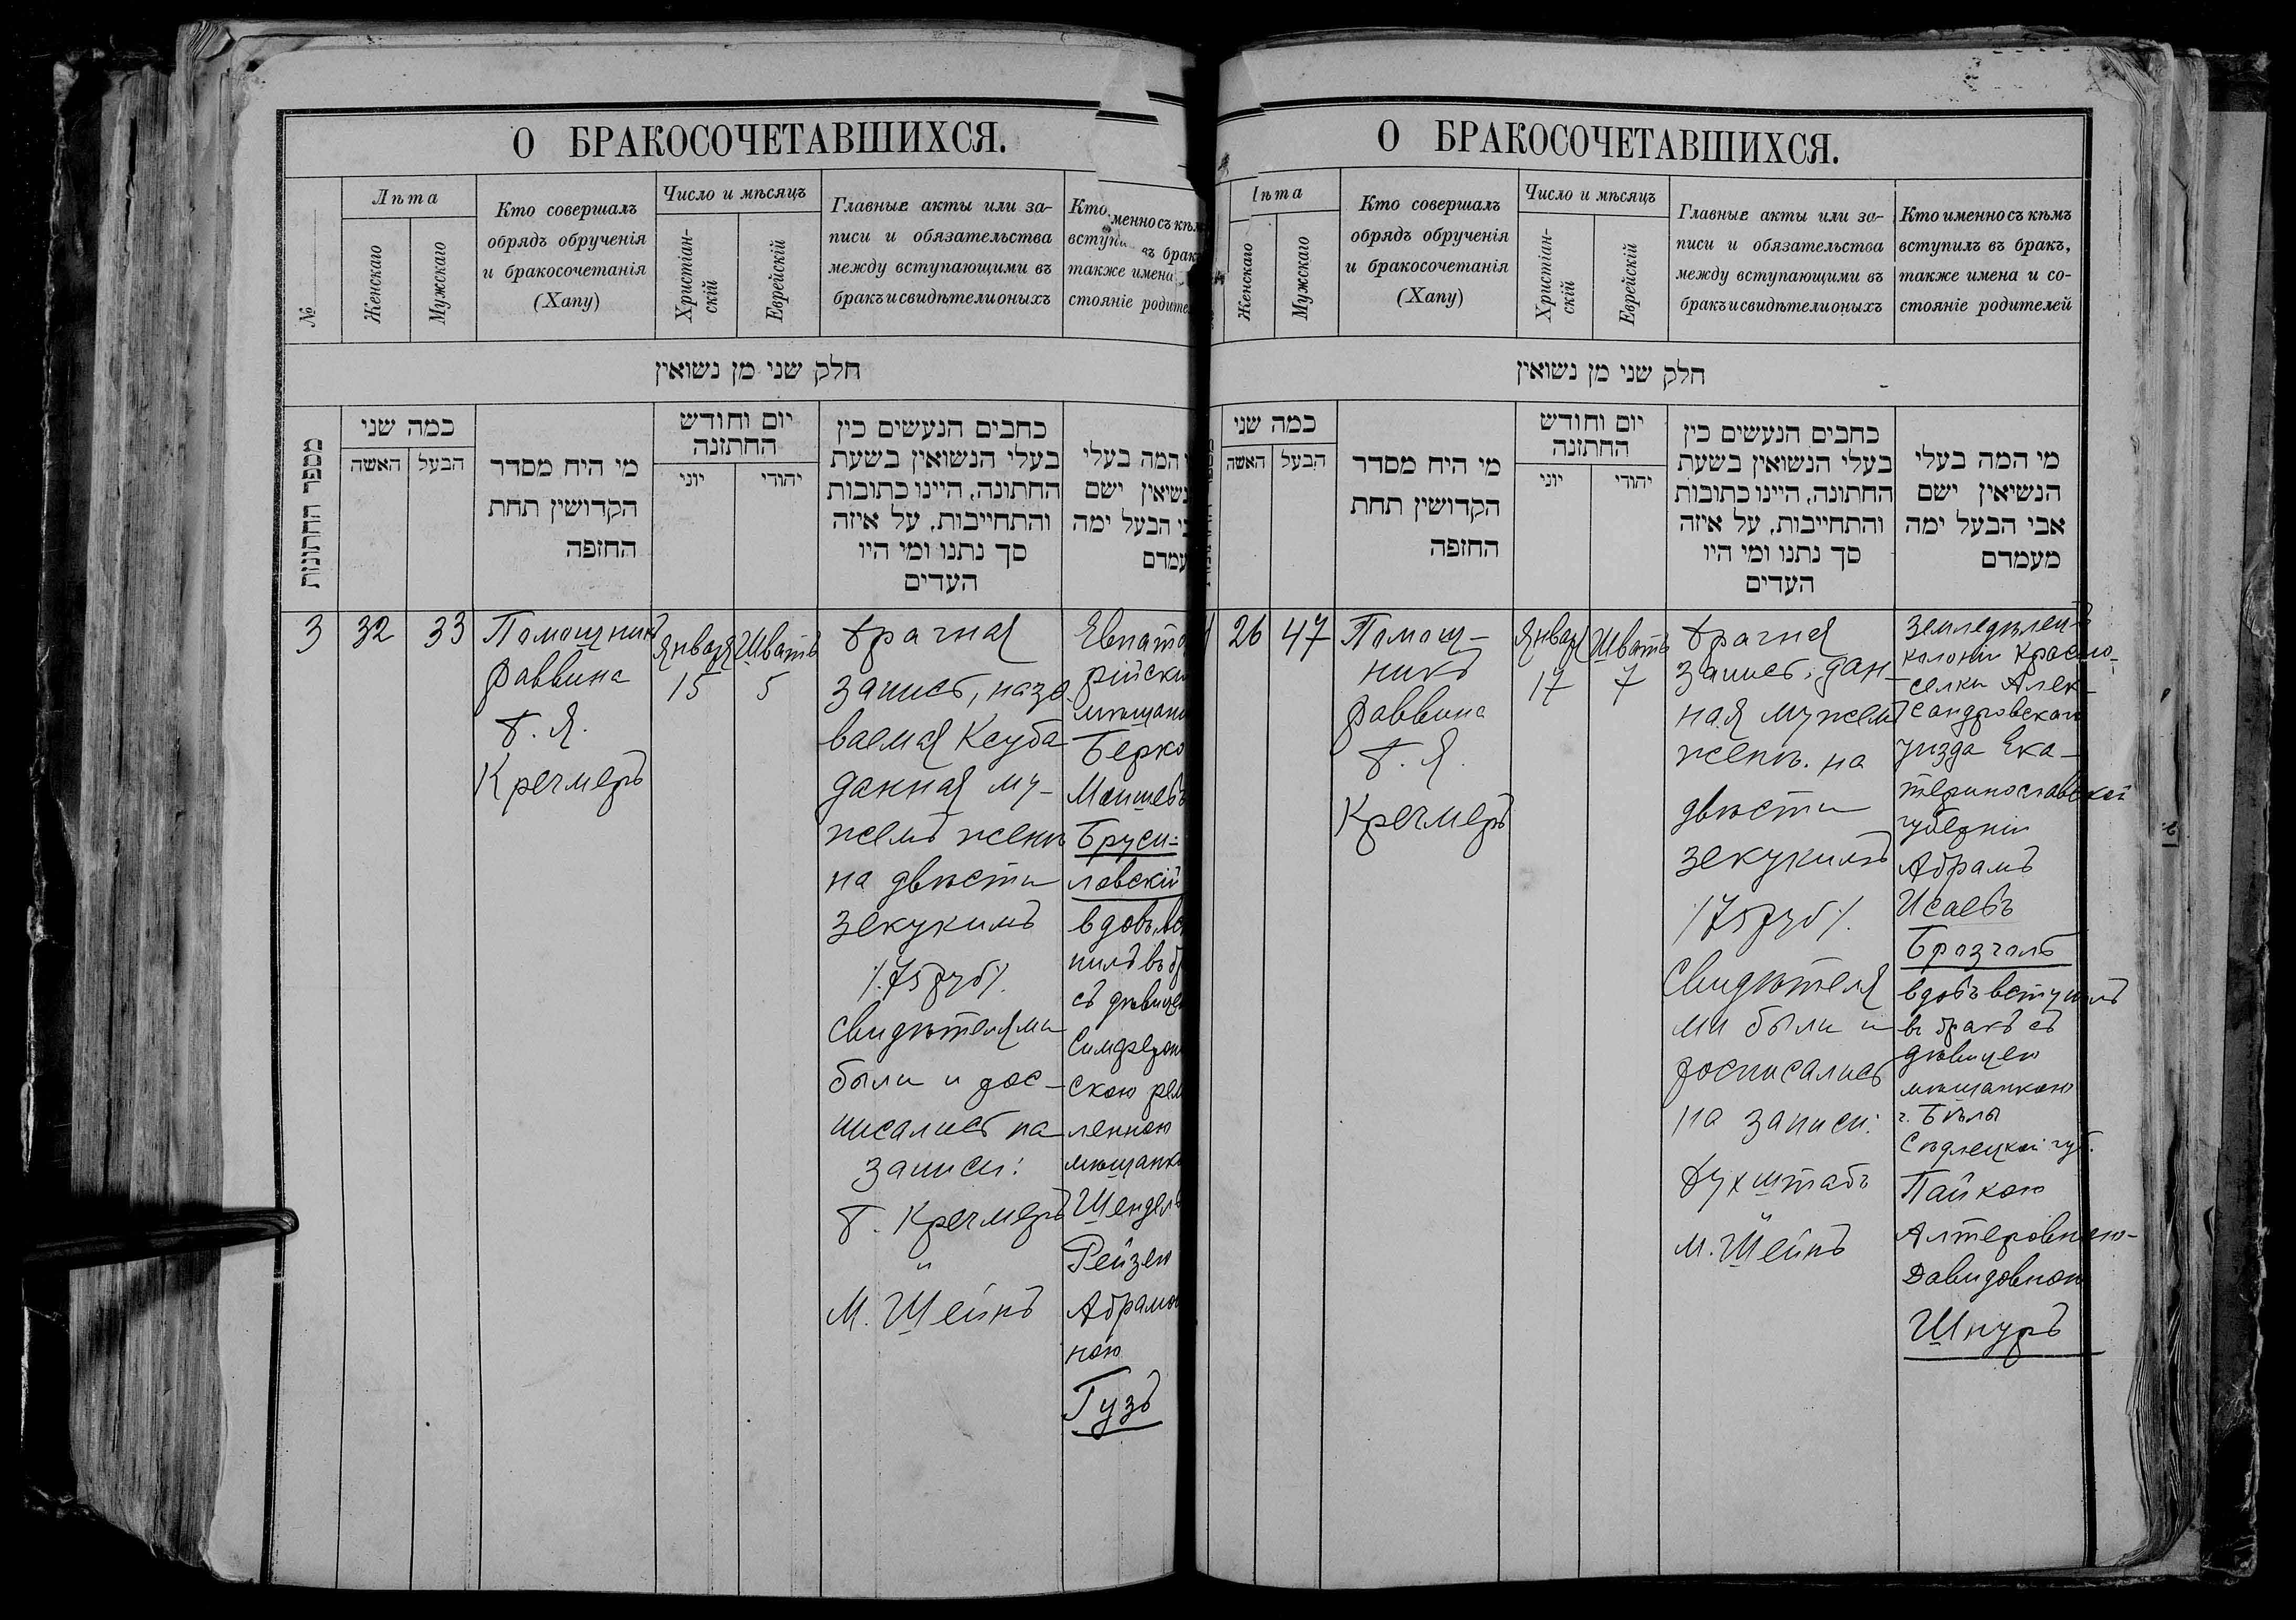 О БРАКОСОЧЕТАВШИХСЯ.
№
Лѣта
Женскаго
Мужскаго
Кто совершалъ
обрядъ обрученія
и бракосочетанія
(Хапу)
Число и мѣсяцъ
Христіан-
скій
Еврейскій
Главные акты или за-
писи и обязательства
между вступающими въ
бракъ и свидѣтели оныхъ
Кто менно съ кѣм
вступи въ брак
также имена
стояніе родите
חלק שני מן נשואין
מספר החתונות
כמה שני
האשה
הבעל
מי היח מסדר
הקדושין תחת
החופה
יום וחודש
החתונה
יוני
יהודי
כחבים הנעשים כין
בעלי הנשואין בשעת
החתונה, היינו כתובות
והתחייבות, על איזה
סך נתנו ומי היו
העדים
המה בעלי
נשיאין ישם
בי הבעל ימה
עמדם
3
32
33
Помощникъ
раввина
Б. Я.
Кречмеръ
Января
15
Шватъ
5
Брачная
запись, назы
ваемая Ксуба
данная му-
жемъ женѣ
на двѣсти
зекукимъ
/.75 руб/.
Свидѣтелями
были и рос-
писались на
записи:
Б. Кречмеръ
и
М. Шейнъ
Евпато
рійскі
мѣщани
Берко
Моишевъ
Бруси=
ловскій
вдовъ вс
пилъ въ б
съ дѣвице
Симфероп
скою рем
ленною
мѣщанк
Шендель
Рейзею
Абрамо
ною
Гузъ
О БРАКОСОЧЕТАВШИХСЯ.
ѣта
Женскаго
Мужскаго
Кто совершалъ
обрядъ обрученія
и бракосочетанія
(Хапу)
Число и мѣсяцъ
Христіан-
скій
Еврейскій
Главные акты или за-
писи и обязательства
между вступающими въ
бракъ и свидѣтели оныхъ
Кто именно съ кѣмъ
вступилъ въ бракъ,
также имена и со-
стояніе родителей
חלק שני מן נשואין
כמה שני
האשה
הבעל
מי היח מסדר
הקדושין תחת
החופה
יום וחודש
החתונה
יוני
יהודי
כחבים הנעשים כין
בעלי הנשואין בשעת
החתונה, היינו כתובות
והתחייבות, על איזה
סך נתנו ומי היו
העדים
מי המה בעלי
הנשיאין ישם
אבי הבעל ימה
מעמדם
26
47
Помощ-
никъ
раввина
Б. Я.
Кречмеръ
Январ
17
Шватъ
7
Брачная
запись, дан-
ная мужемъ
женѣ. на
двѣсти
зекукимъ
/75 руб/.
Свидѣтеля
ми были и
росписались
на записи:
Бухштабъ
и
М. Шейнъ
Земледѣлецъ
колоніи Красно-
селки Алек-
сандровскаго
уѣзда Ека-
теринославской
губерніи
Абрамъ
Исаевъ
Бразголь
вдовъ вступилъ
въ бракъ съ
дѣвицею
мѣщанкою
г. Бѣлы
Сѣдлецкой губ.
Пайкою
Алтеровною-
Давидовною
Шнуръ